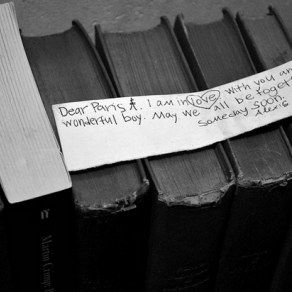 Dear Paris. I am in love with you and
wonderful boy. May we all be toget
someday soon.
Alexis
Martin Crimp